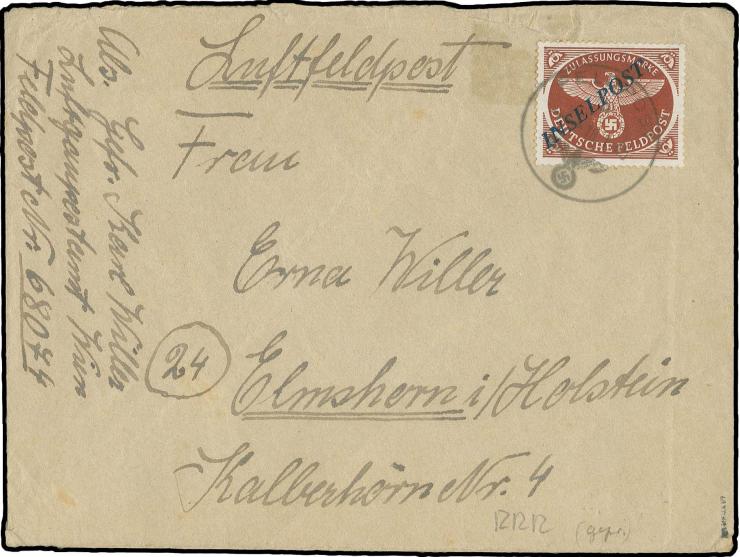 Luftfeldpost
Frau
Erna Willer
24
Elmshorn i/Holstein
Kalberhörn Nr. 4
Abs. Gefr. Karl Willer
Luftgaupostamt Wien
Feldpost Nr. 68074
ZULASSUNGSMARKE
INSELPOST
DEUTSCHE FELDPOST
RRR (gepr.)